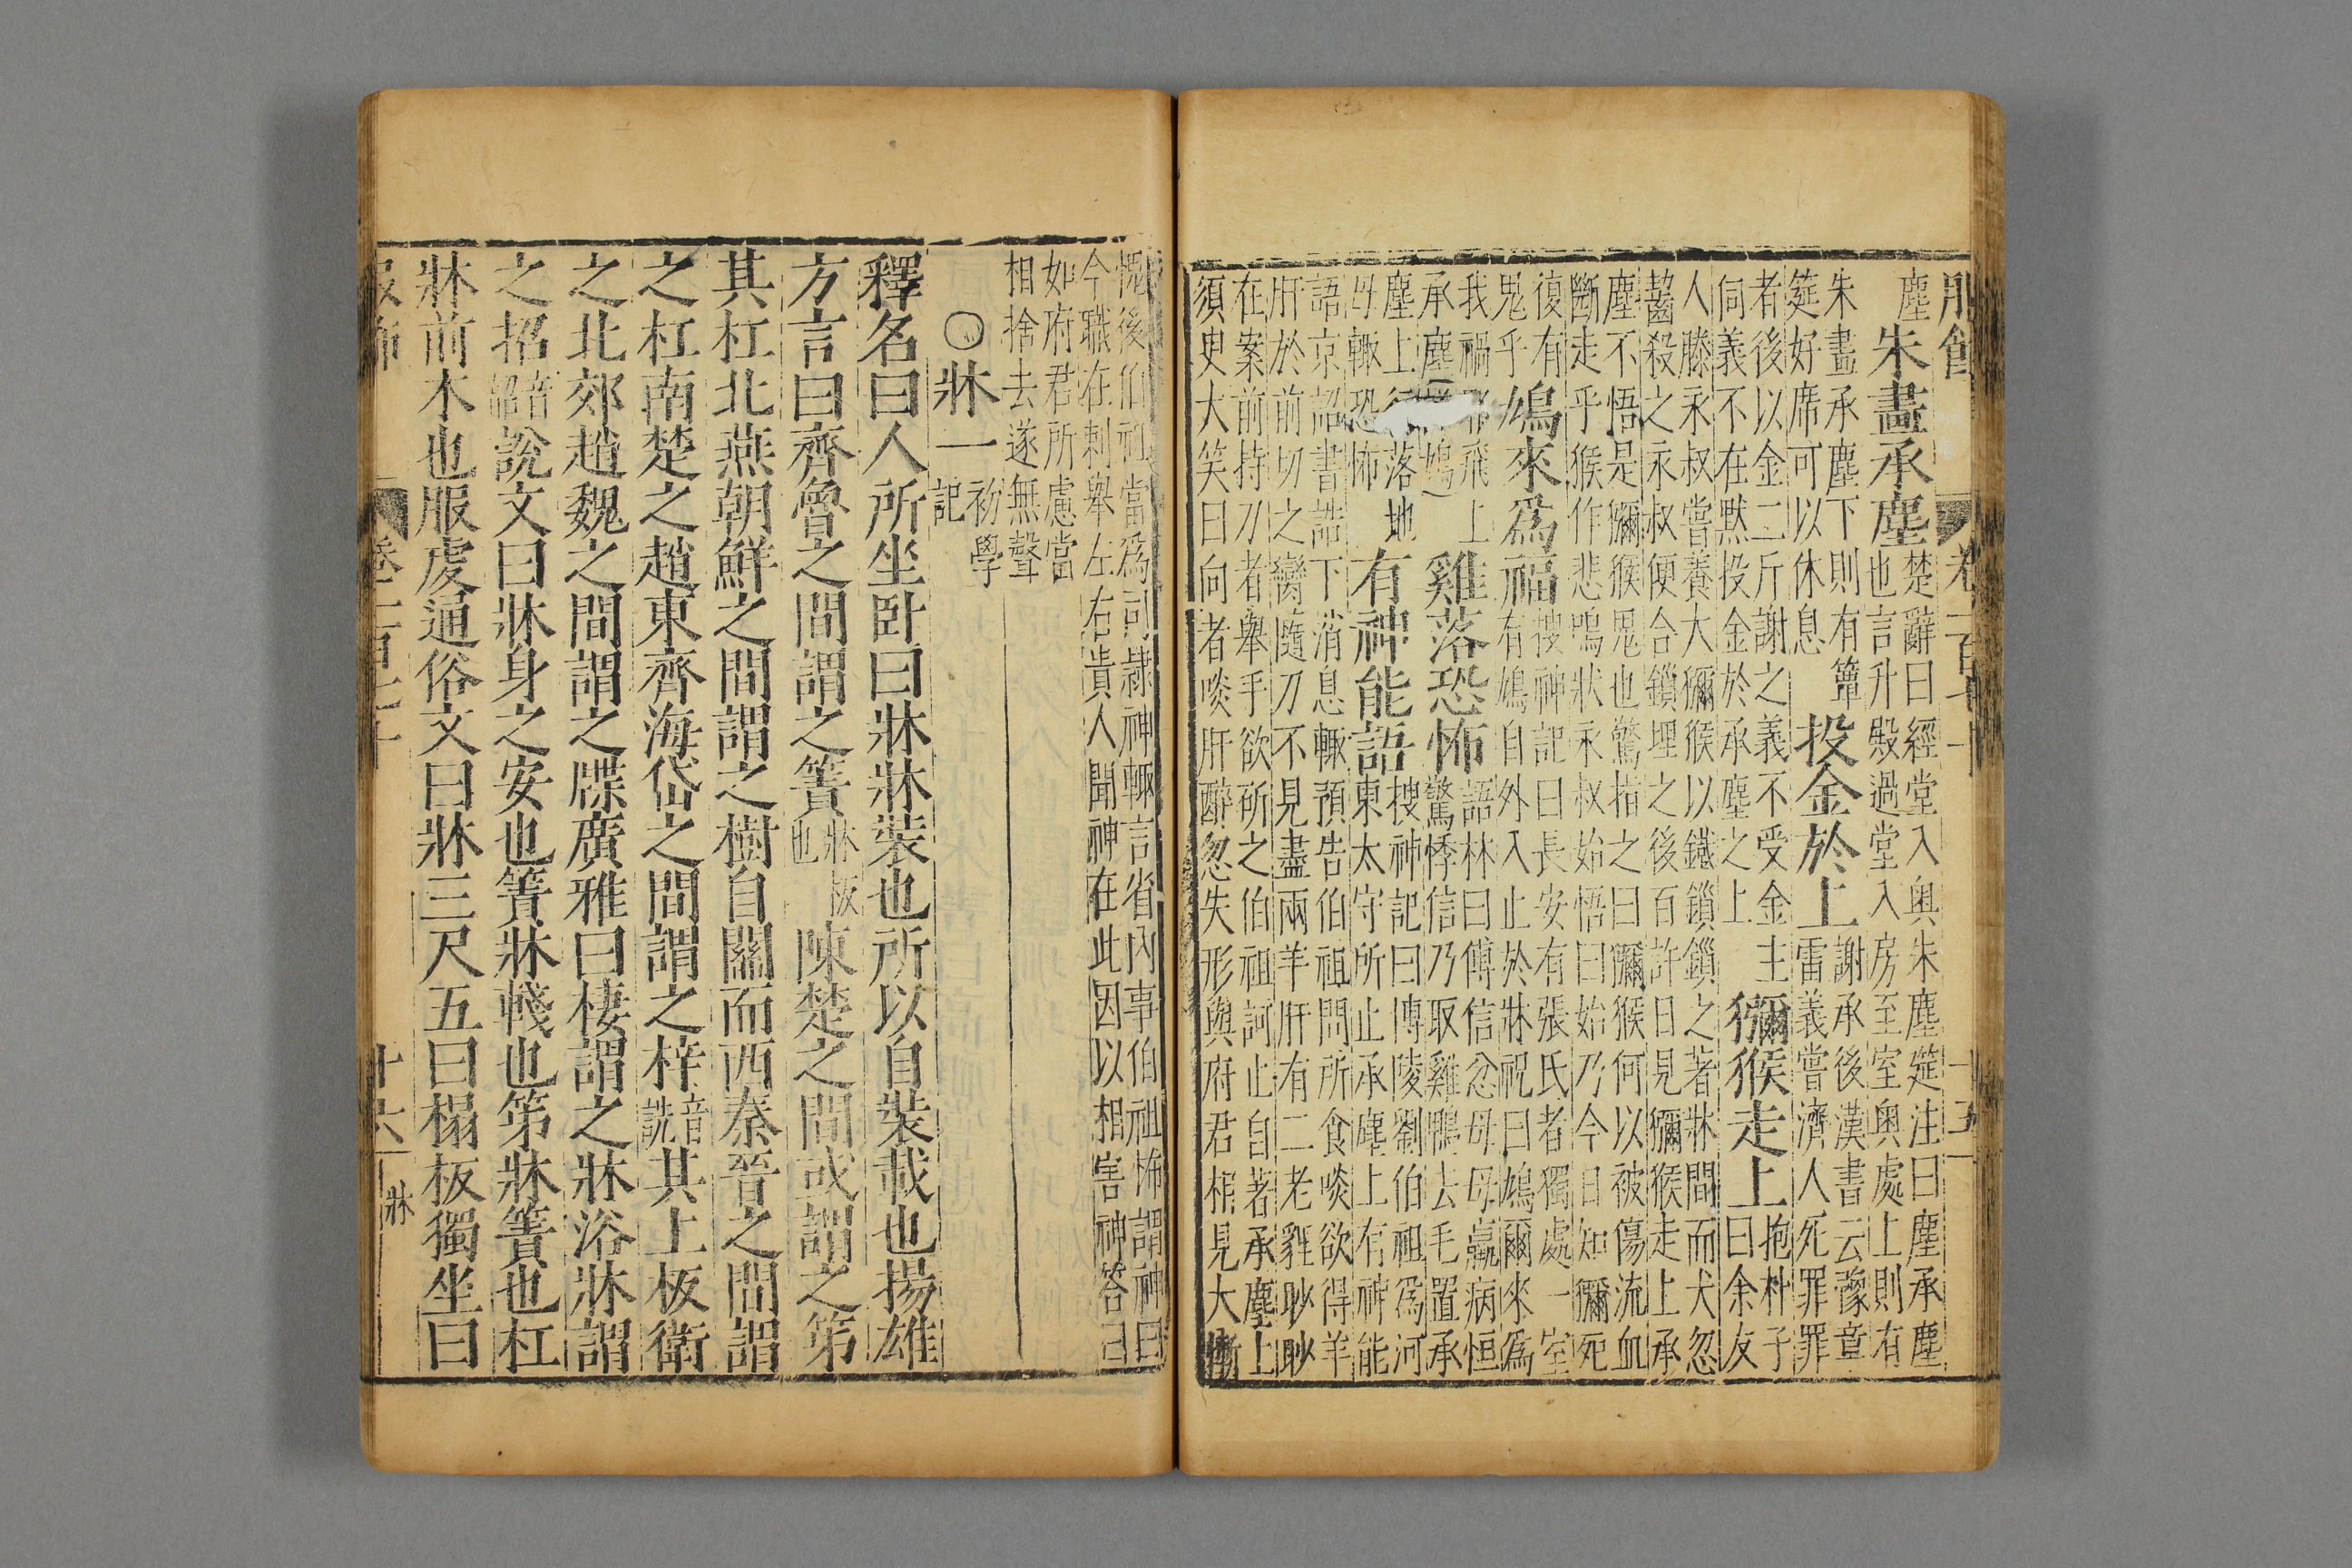 塵
朱畫承塵
楚辭曰經堂入奥朱塵筵注曰塵承塵
也言升殿過堂入房至室奥處上則有
朱畫承塵下則有簟
筵好席可以休息
投金於上
謝承後漢書云豫章
雷義嘗濟人死罪罪
者後以金二斤謝之義不受金主
伺義不在黙投金於承塵之上
獼猴走上
抱朴子
曰余友
人滕永叔嘗養大獼猴以鐵鎖鎖之著牀間而犬忽
齧殺之永叔便合鎖埋之後百許日見獼猴走上承
塵不悟是獼猴鬼也驚指之曰獼猴何以被傷流血
斷走乎猴作悲鳴狀永叔始悟曰始乃今日知獼死
復有
鬼乎
鳩來爲福
搜神記曰長安有張氏者獨處一室
有鳩自外入止於牀祝曰鳩爾來爲
我禍耶飛上
承塵鳩
雞落恐怖
語林曰傅信忿母母羸病恒
驚悸信乃取雞鴨去毛置承
塵上行落地
母輙恐怖
有神能語
搜神記曰博陵劉伯祖爲河
東太守所止承塵上有神能
語京詔書誥下消息輙預告伯祖問所食啖欲得羊
肝於前切之臠隨刀不見盡兩羊肝有二老貍眇眇
在案前持刀者舉手欲斫之伯祖訶止自著承塵上
須臾大笑曰向者啖肝醉忽失形與府君相見大慚
愧後伯祖當爲司隷神輙言省内事伯祖怖謂神曰
今職在刺舉左右貴人聞神在此因以相害神答曰
如府君所慮當
相捨去遂無聲
〇牀一
初學
記
釋名曰人所坐卧曰牀牀裝也所以自裝載也揚雄
方言曰齊魯之間謂之簀
牀板
也
陳楚之間或謂之第
其杠北燕朝鮮之間謂之樹自關而西秦晉之間謂
之杠南楚之趙東齊海岱之間謂之梓
音
詵
其上板衛
之北郊趙魏之間謂之牒廣雅曰棲謂之牀浴牀謂
之招
音
詔
説文曰牀身之安也簀牀棧也第牀簀也杠
牀前木也服虔通俗文曰牀三尺五曰榻板獨坐曰
服飾
卷二百七十
十六
牀